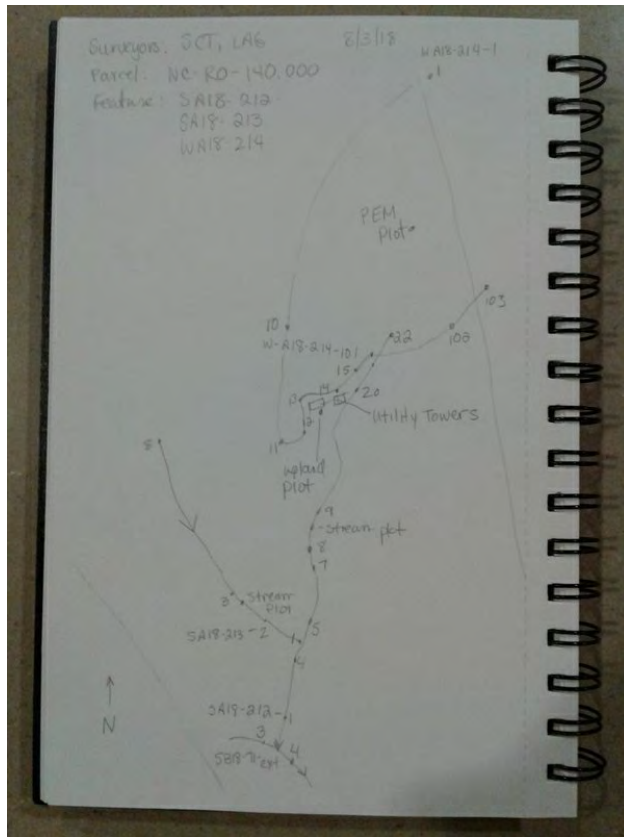 Surveyors: SCT, LAG 8/3/18
Parcel: NC-RO-140.000
Feature: SA18-212
SA18-213
WA18-214
WA18-214-1
1
PEM
Plot
103
10
102
22
W-A18-214-101
15
14
20
Utility Towers
12
11
8
upland
plot
9
stream plot
8
7
3
Stream
Plot
5
SA18-213-2
1
4
SA18-212-1
N
3
4
ext